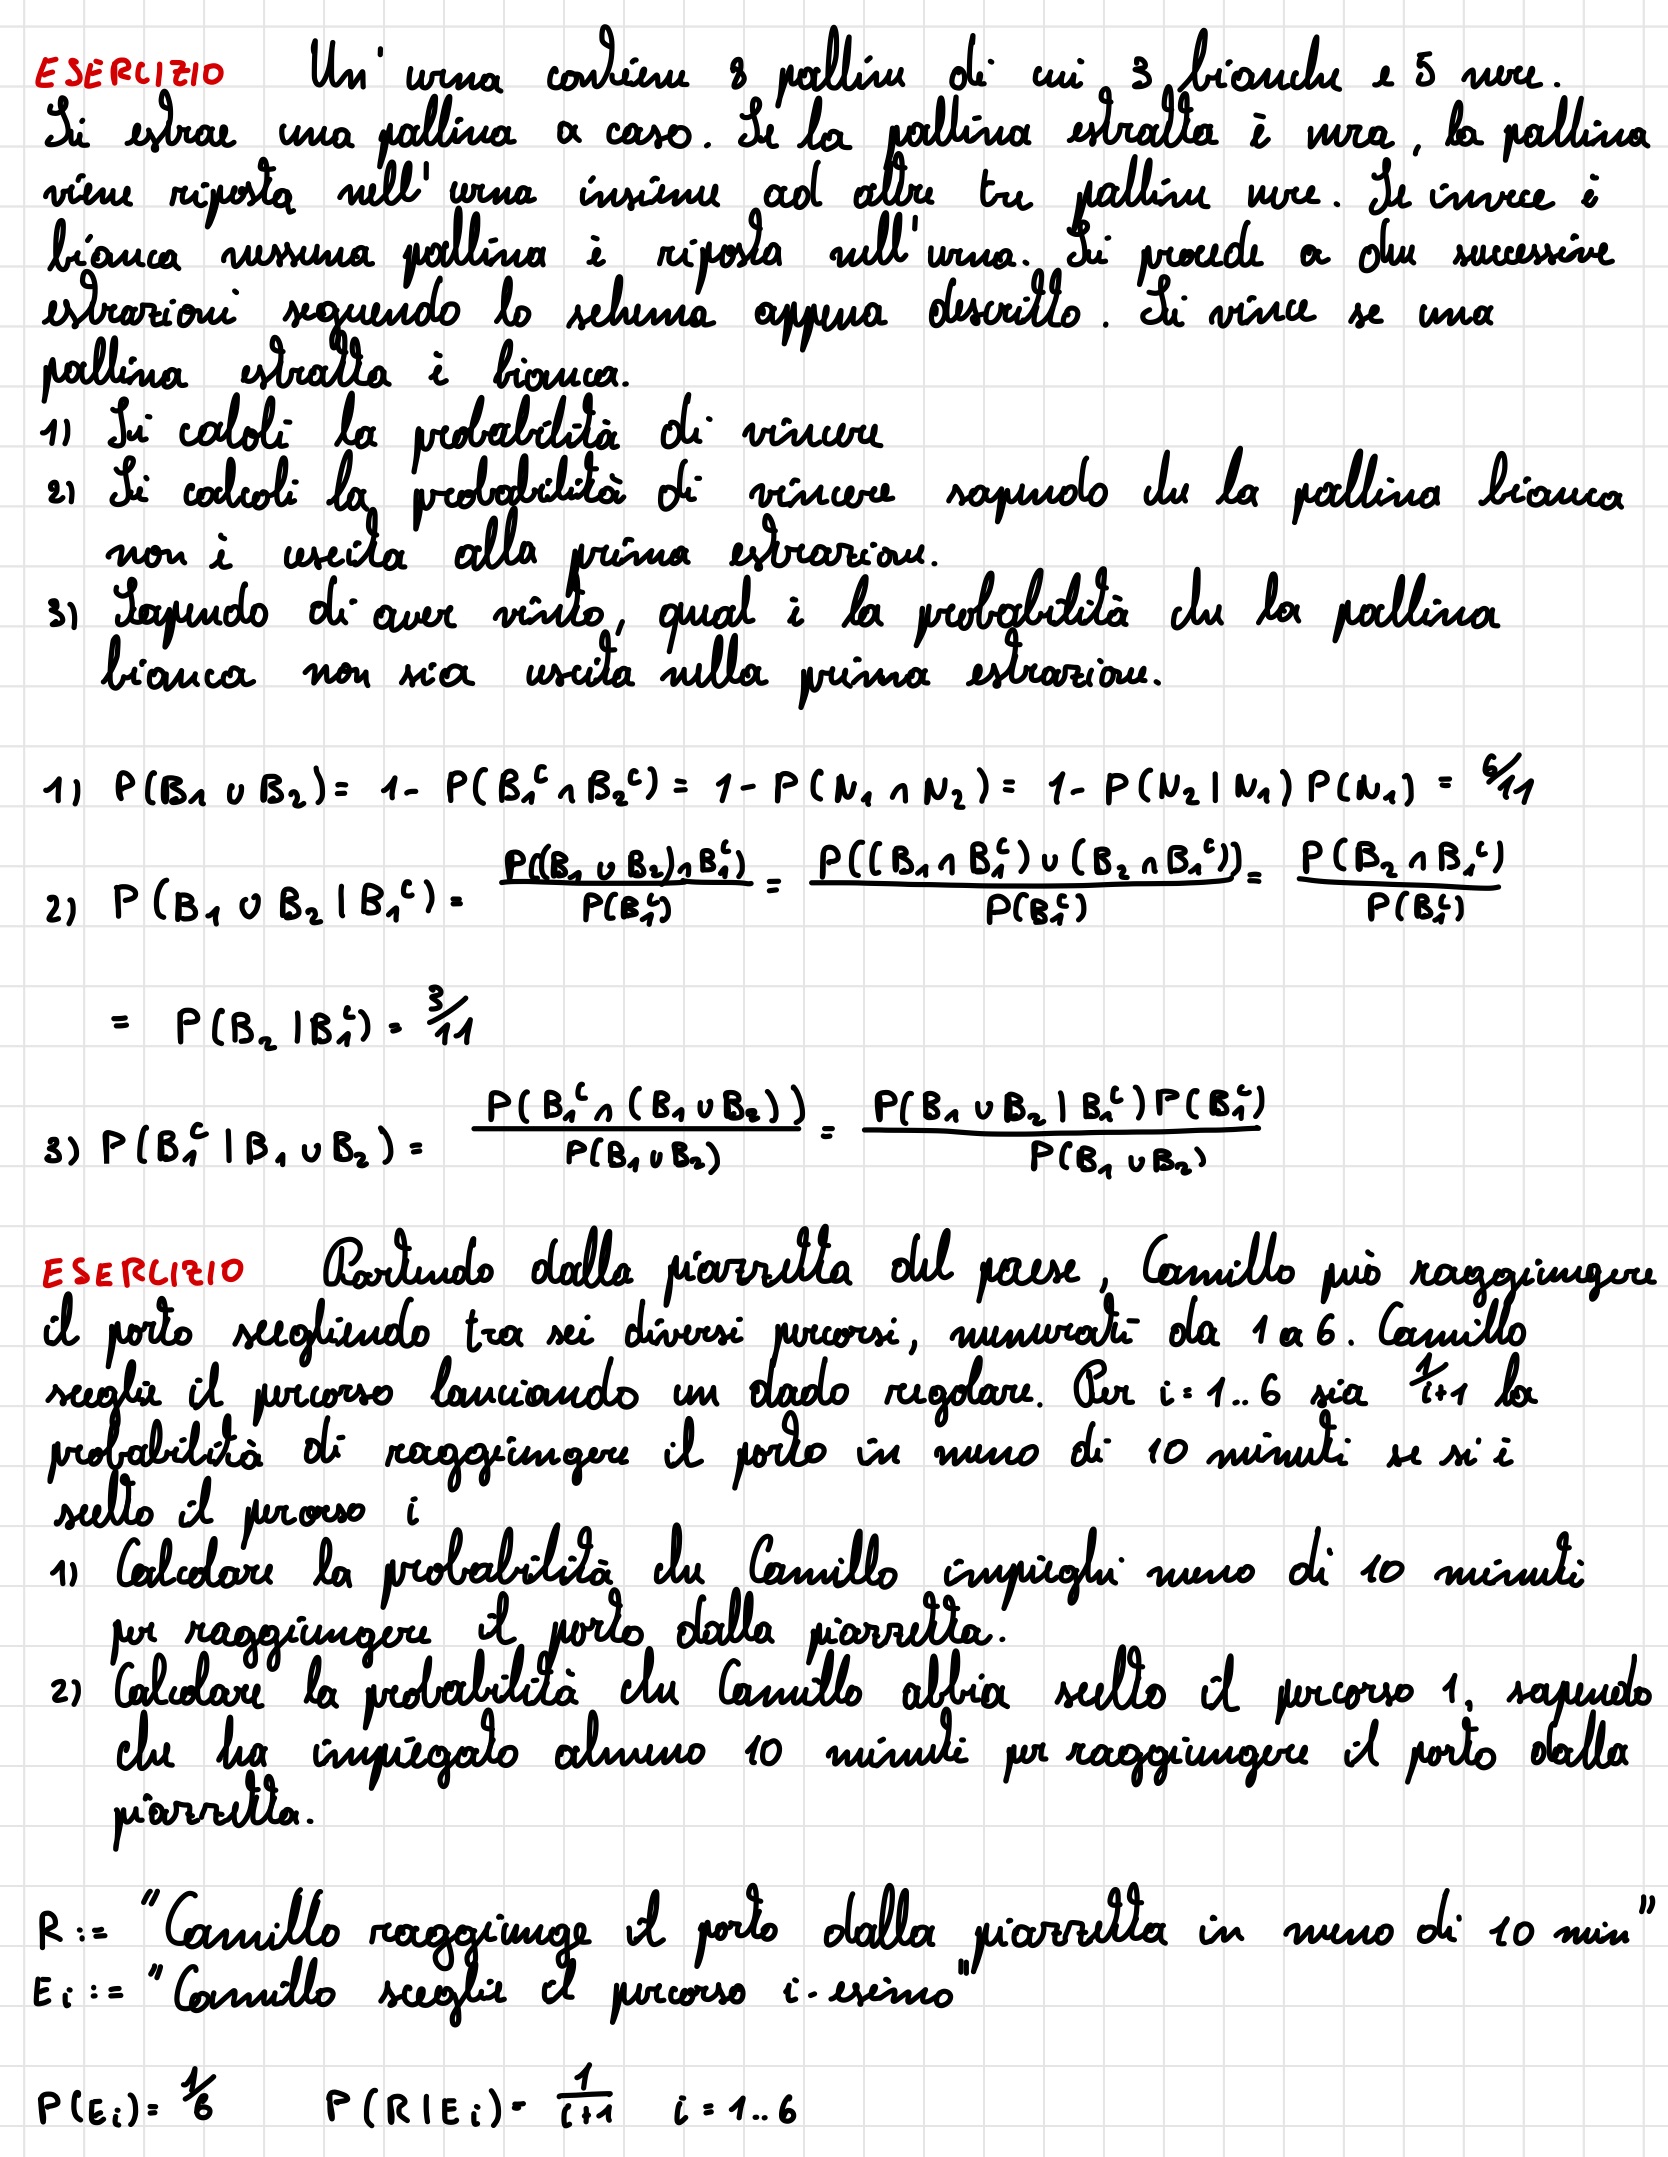 ESERCIZIO Un' urna contiene 8 palline di cui 3 bianche e 5 nere.
Si estrae una pallina a caso. Se la pallina estratta è nera, la pallina
viene riposta nell' urna insieme ad altre tre palline nere. Se invece è
bianca nessuna pallina è riposta nell'urna. Si procede a due successive
estrazioni seguendo lo schema appena descritto. Si vince se una
pallina estratta è bianca.
1) Si caloli la probabilità di vincere
2) Si calcoli la probabilità di vincere sapendo che la pallina bianca
non è uscita alla prima estrazione.
3) Sapendo di aver vinto, qual è la probabilità che la pallina
bianca non sia uscita nella prima estrazione.
1) P(B₁ ∪ B₂) = 1 - P(B₁ᶜ ∩ B₂ᶜ) = 1 - P(N₁ ∩ N₂) = 1 - P(N₂ | N₁) P(N₁) = 6/11
2) P(B₁ ∪ B₂ | B₁ᶜ) = P((B₁ ∪ B₂) ∩ B₁ᶜ) / P(B₁ᶜ) = P((B₁ ∩ B₁ᶜ) ∪ (B₂ ∩ B₁ᶜ)) / P(B₁ᶜ) = P(B₂ ∩ B₁ᶜ) / P(B₁ᶜ)
= P(B₂ | B₁ᶜ) = 3/11
3) P(B₁ᶜ | B₁ ∪ B₂) = P(B₁ᶜ ∩ (B₁ ∪ B₂)) / P(B₁ ∪ B₂) = P(B₁ ∪ B₂ | B₁ᶜ) P(B₁ᶜ) / P(B₁ ∪ B₂)
ESERCIZIO Partendo dalla piazzetta del paese, Camillo può raggiungere
il porto scegliendo tra sei diversi percorsi, numerati da 1 a 6. Camillo
sceglie il percorso lanciando un dado regolare. Per i = 1..6 sia 1/i+1 la
probabilità di raggiungere il porto in meno di 10 minuti se si è
scelto il percorso i
1) Calcolare la probabilità che Camillo impieghi meno di 10 minuti
per raggiungere il porto dalla piazzetta.
2) Calcolare la probabilità che Camillo abbia scelto il percorso 1, sapendo
che ha impiegato almeno 10 minuti per raggiungere il porto dalla
piazzetta.
R := "Camillo raggiunge il porto dalla piazzetta in meno di 10 min"
Eᵢ := "Camillo sceglie il percorso i-esimo"
P(Eᵢ) = 1/6 P(R | Eᵢ) = 1/i+1 i = 1..6